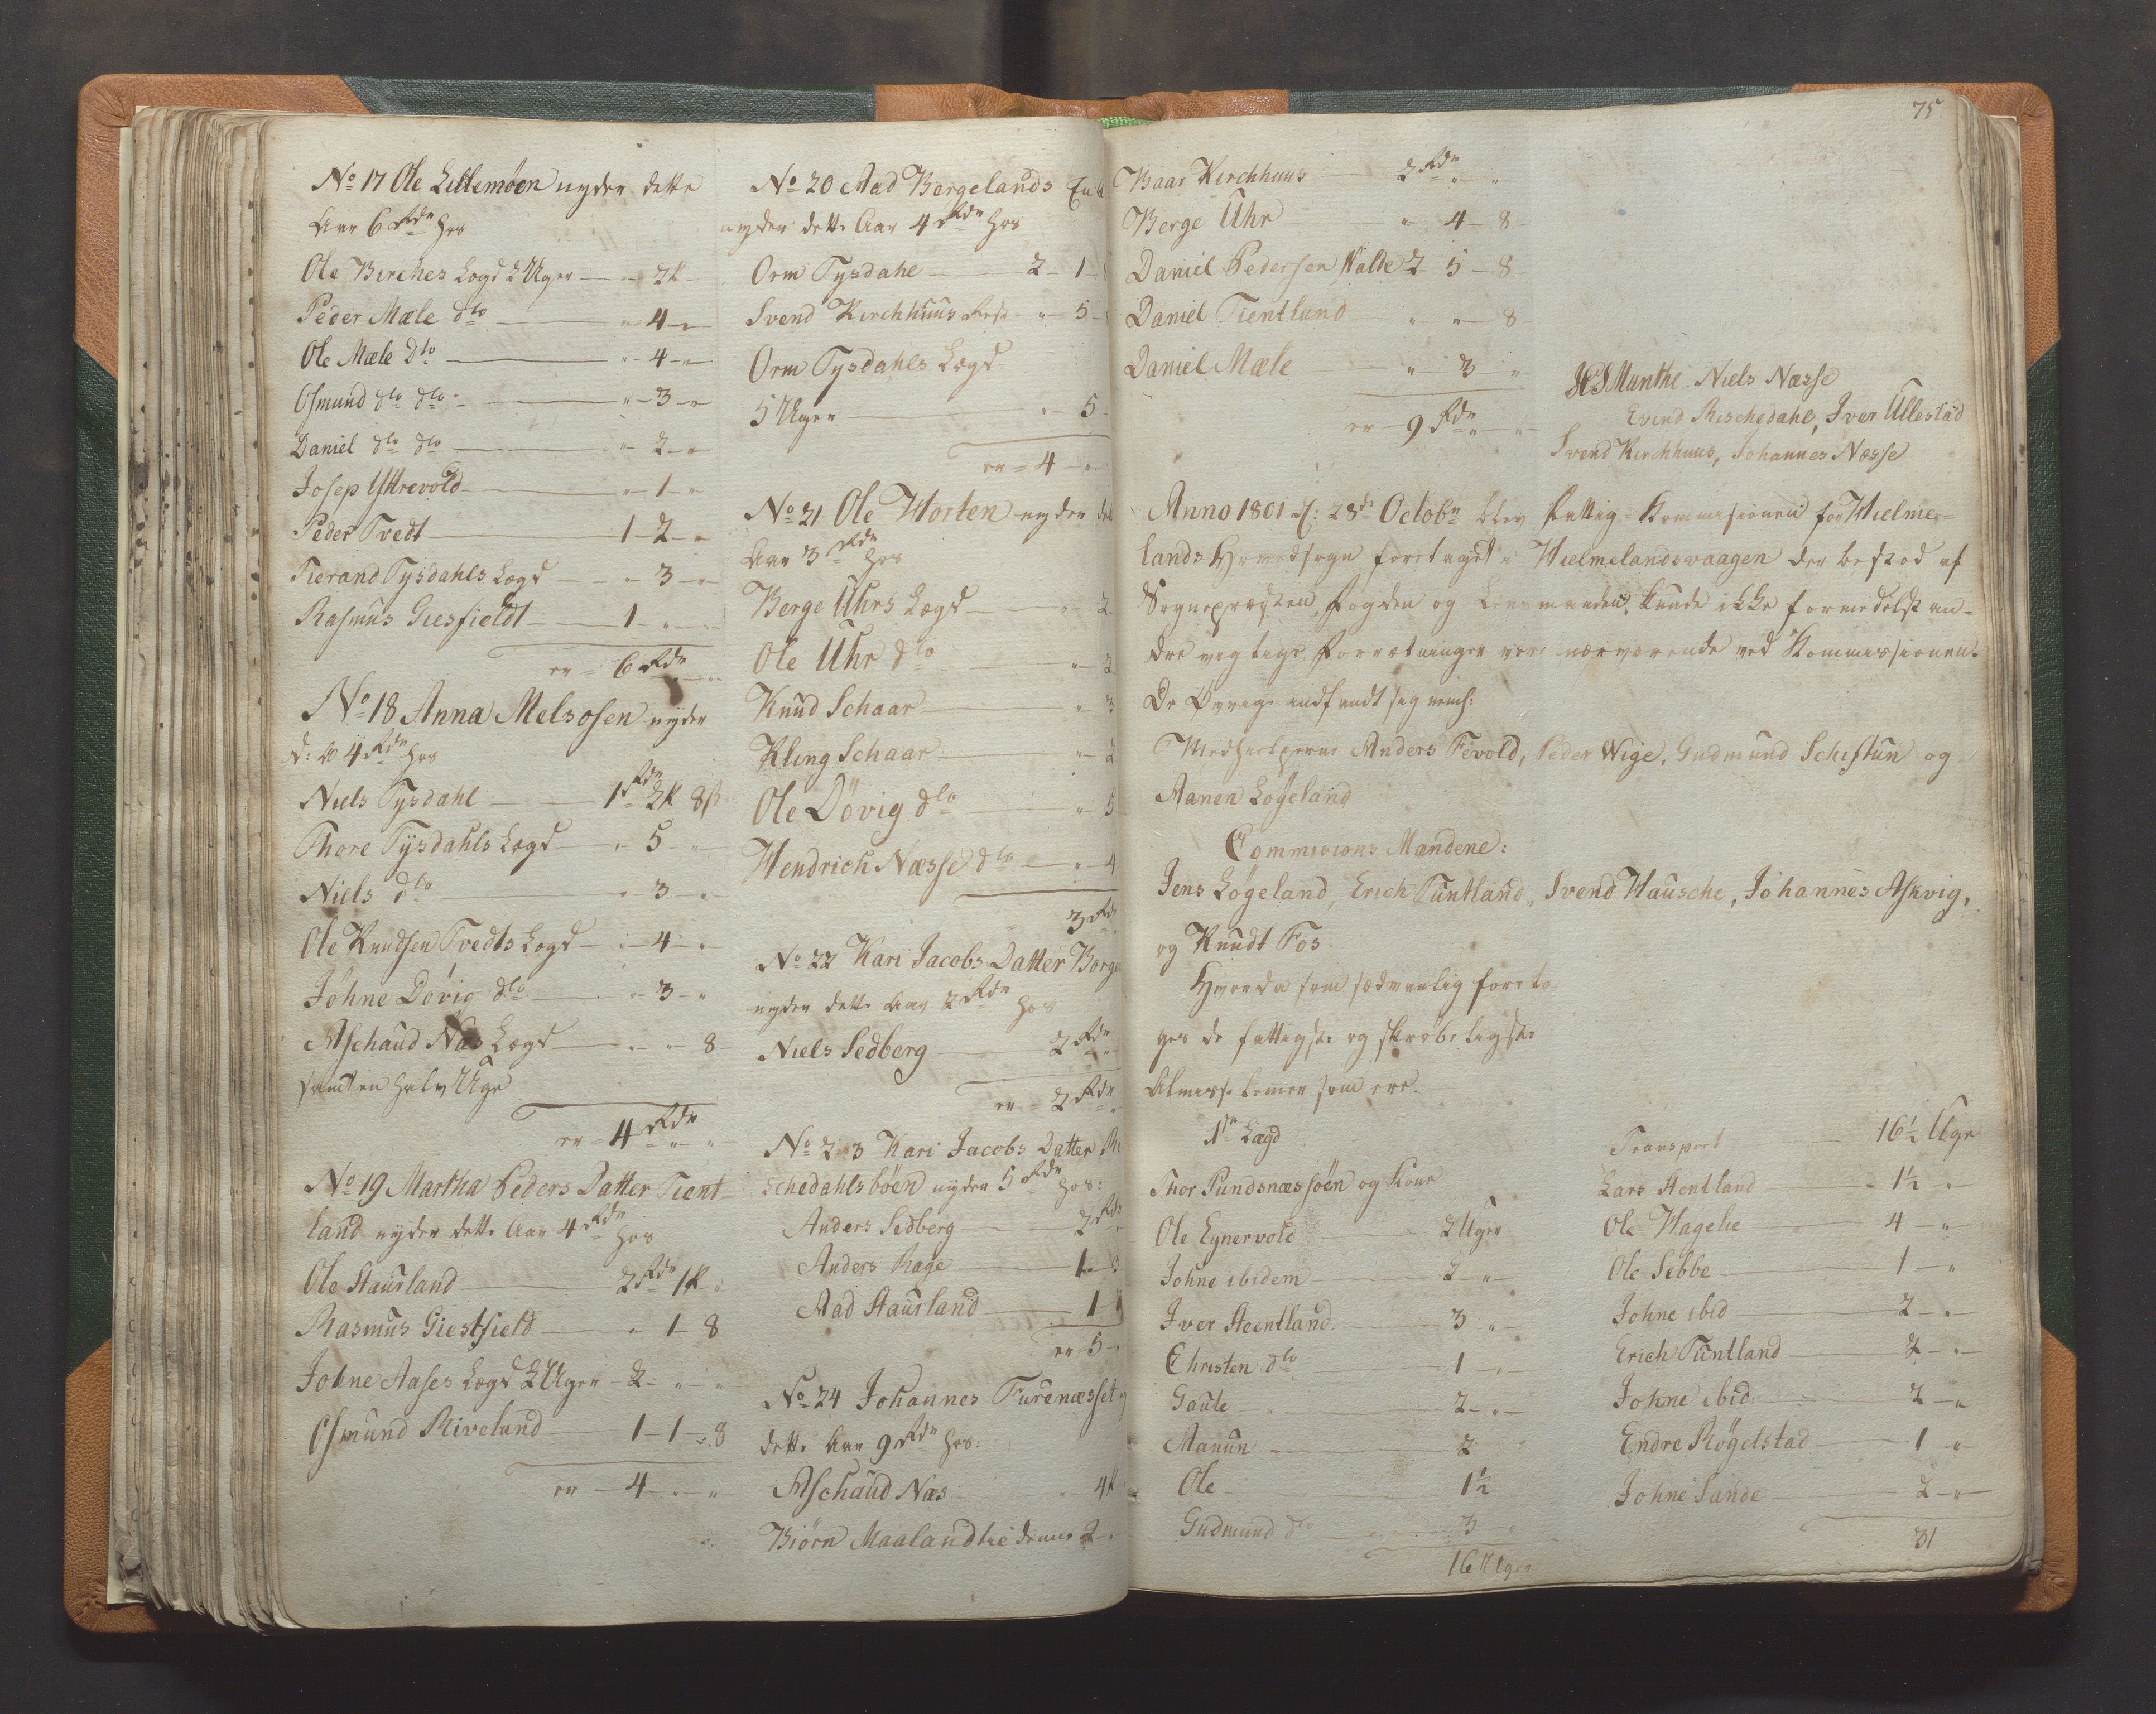 No 17 Ole Lillemøen nyder dette
Aar 6 Rdr hos
Ole Birches Lægd 2 Uger - " - 2 K
Peder Mæle dto - " - 4 - "
Ole Mæle dto - " - 4 - "
Osmund dto dto - " - 3 - "
Daniel dto dto - " - 2 - "
Josep Yttrevold - " - 1 - "
Peder Tvedt - 1 - 2 - "
Tierand Tysdahls Lægd - " - 3 - "
Rasmus Giesfieldt - 1 - " - "
er = 6 Rdr
No 18 Anna Melsosen nyder
d: to 4 Rdr hos
Niels Tysdahl - 1 Rdr 2 K 8 ß
Thore Tysdahls Lægd - " 5 - "
Niels dto - " 3 - "
Ole Knudsen Tvedts Lægd - " - 4 - "
Johne Døvig dto - " - 3 - "
Aschaud Næs Lægd - " - " - 8
samt en halv Uge
er = 4 Rdr " "
No 19 Martha Peders Datter Tient
land nyder dette Aar 4 Rdr hos
Ole Staurland - 2 Rdr 1 K "
Rasmus Giestfield - " 1 - 8
Johne Aases Lægd 2 Uger - 2 - " - "
Osmund Riveland - 1 - 1 - 8
er - 4 - " - "
No 20 Aad Børgelands
nyder dette Aar 4 Rdr hos
Orm Tysdahl - 2 - 1 -
Svend Kirchhuus " - 5 -
Orm Tysdahls Lægd
5 Uger - " - 5 -
er = 4 - "
No 21 Ole Horten nyder
Aar 3 Rdr hos
Berge Uhrs Lægd - " - 2
Ole Uhr dto " - 2
Knud Schaar - " 3
Kling Schaar - " - 2
Ole Døvig dto - " 5
Hendrich Næsse dto - " - 4
3 Rdr
No 22 Kari Jacobs Datter Børge
nyder dette Aar 2 Rdr hos
Niels Sedberg 2 Rdr
er = 2 Rdr
No 23 Kari Jacobs Datter
schedahlsbøen nyder 5 Rdr hos:
Anders Sedberg - 2 Rdr
Anders Rage - 1 - 3
Aad Staurland - 1 -
er 5 -
No 24 Johannes Furenæsset
dette Aar 9 Rdr hos:
Aschaud Næs " 4 K
Biørn Maaland 2 -
75
Baar Kirchhuus 2 Rdr " "
Berge Uhr " 4 - 8 -
Daniel Pedersen Halle 2 - 5 - 8
Daniel Tientland " " - 8
Daniel Mæle - " 3 "
er - 9 Rdr " "
Munthe Niels Næsse
Evind Rischedahl, Iver Ullestad
Svend Kirchhuus, Johannes Næsse
Anno 1801 d: 28de Octobr blev Fattig-Kommisionen for Hielme-
lands Hovedsogn foretaget i Hielmelandsvaagen der bestod af
Sognepræsten, Fogden og Lensmanden, kunde ikke formedelst an-
dre vigtige Forretninger være nærværende ved Kommissionen.
De Øvrige indfandt sig nemh:
Medhielperne Anders Fevold, Peder Wige, Gudmund Schiftun og
Aanen Løgeland
Commisions Mændene:
Jens Løgeland, Erich Tuntland, Svend Hausche, Johannes Askvig,
og Knudt Fos.
Hvorda som sædvanlig foreto-
ges de fattigste og skrøbeligste
Almisse Lemer som ere.
1ste Lægd
Thor Pundsnæssøen og Kone
Ole Eynervold 2 Uger
Johne ibidem 2 - " -
Iver Steentland 3 " -
Christen dto 1 - " -
Gaute 2 - " -
Aanun 2
Ole 1½
Gudmund dto 3 "
16 Uger
Transport 16½ Uge
Lars Stentland 1½ - "
Ole Hagelie 4 "
Ole Sebbe 1 - "
Johne ibid 2 - " -
Erich Tuntland 2 - " -
Johne ibid: 2 - "
Endre Røgelstad 1 - "
Johne Sande 2 - " -
31